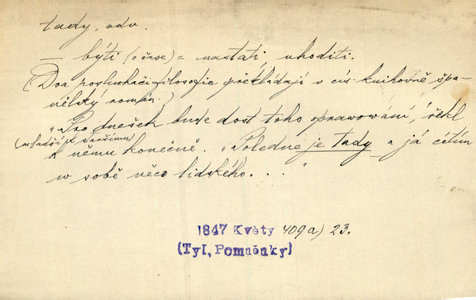 tady, adv.
– býti (o čase) = nastati, uhoditi.
(Dva posluchači filosofie překládají v cís. knihovně špa-
nělský román.)
„Pro dnešek bude dost toho spravování, řekl
mladší k staršímu
k němu konečně. „Poledne je tady a já cítím
v sobě něco lidského. . . "
1847 Květy 409a) 23.
(Tyl, Pomněnky)